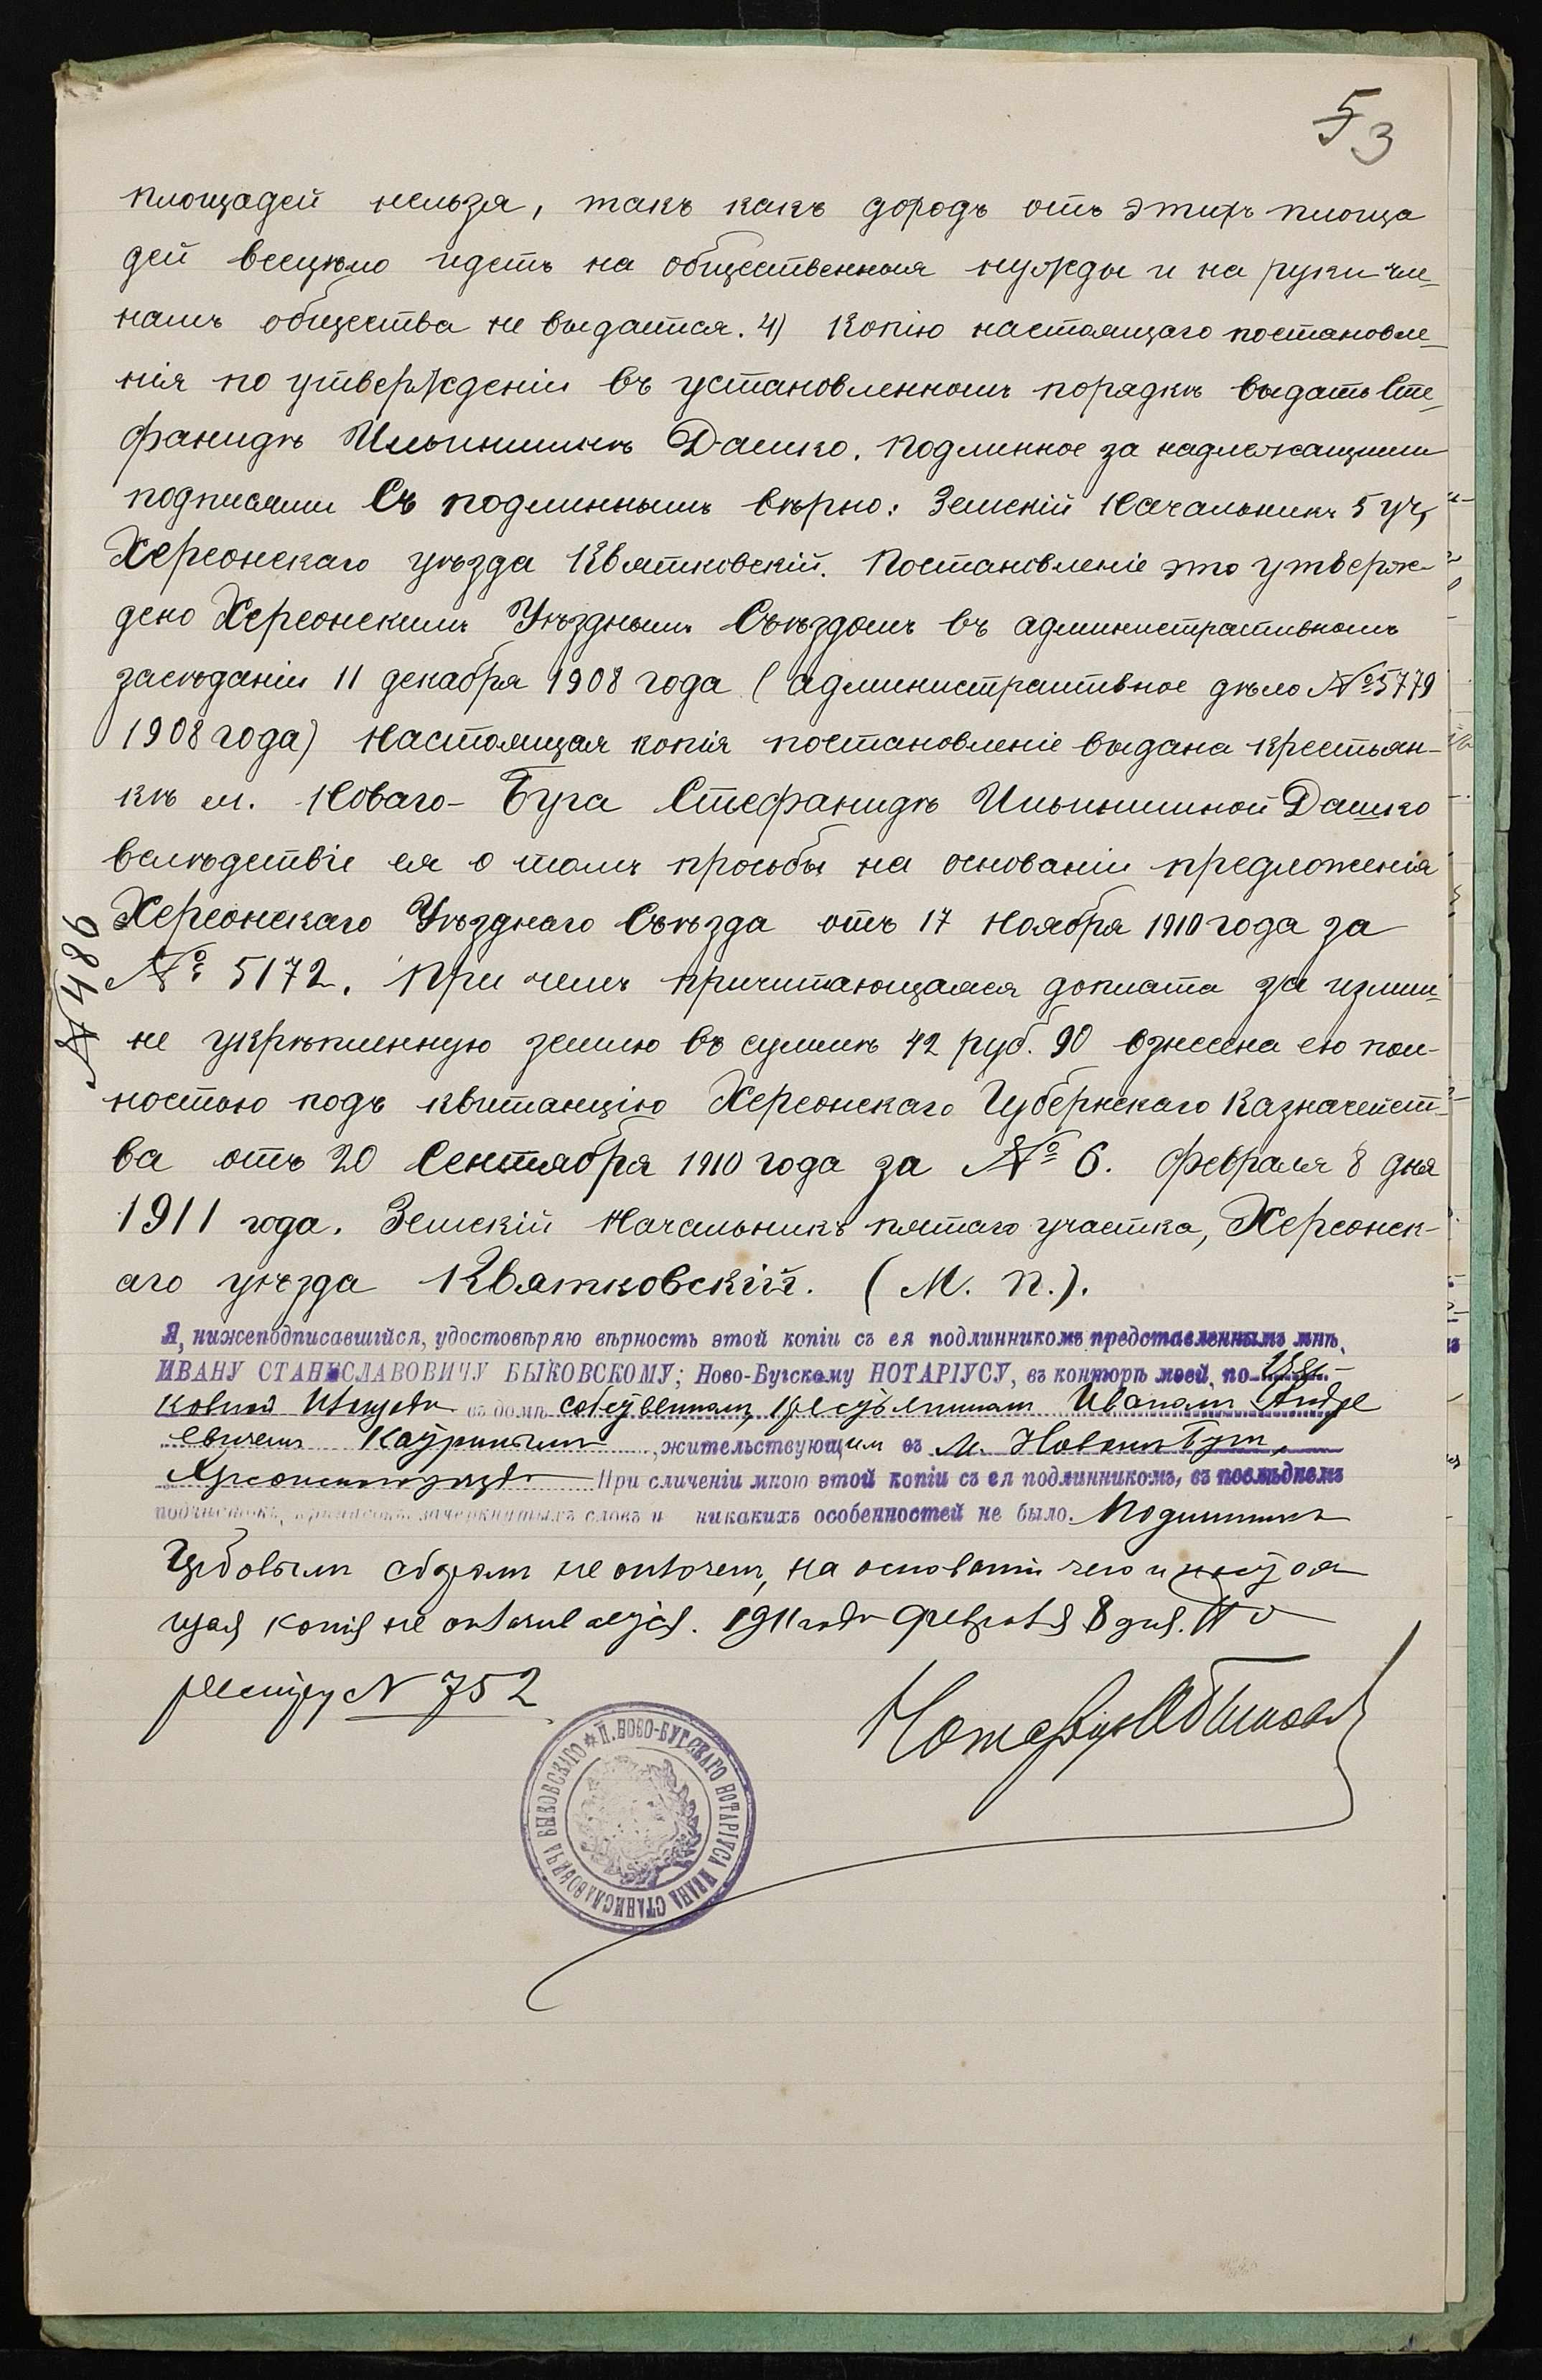 5 3
площадей нельзя, такъ какъ доходъ отъ этихъ площа
дей всецѣло идетъ на общественныя нужды и на руки чле-
намъ общества не выдается. 4) Копію настоящаго постановле-
нія по утвержденіи въ установленномъ порядкѣ выдать Сте-
фанидѣ Ильинишнѣ Дашко. Подлинное за надлежащими
подписями Съ подлиннымъ вѣрно: Земскій Начальникъ 5 уч,
Херсонскаго уѣзда Квятковскій. Постановленіе это утверж-
дено Херсонскимъ Уѣзднымъ Съѣздомъ въ административномъ
засѣданіи 11 декабря 1908 года (административное дѣло № 5779
1908 года) Настоящая копія постановленіе выдана крестьян-
кѣ м. Новаго-Буга Стефанидѣ Ильинишной Дашко
вслѣдствіе ея о томъ просьбы на основаніи предложенія
Херсонскаго Уѣзднаго Съѣзда отъ 17 Ноября 1910 года за
№ 5172. При чемъ причитающаяся доплата за излиш-
не укрѣпленную землю въ суммѣ 42 руб. 90 взнесена ею пол-
ностью подъ квитанцію Херсонскаго Губернскаго Казначейст-
ва отъ 20 Сентября 1910 года за № 6. Февраля 8 дня
1911 года. Земскій Начальникъ пятаго участка, Херсонск-
аго уѣзда Квятковскій. (М. П.).
№ 486
Я, нижеподписавшійся, удостовѣряю вѣрность этой копіи съ ея подлинникомъ представленнымъ мнѣ,
ИВАНУ СТАНИСЛАВОВИЧУ БЫКОВСКОМУ; Ново-Бугскому НОТАРІУСУ, въ конторѣ моей, по
въ домѣ собственномъ, крестьяниномъ Иваномъ Андре
евичемъ жительствующим въ м. Новомъ Бугѣ,
Херсонскаго уѣзда При сличеніи мною этой копіи съ ея подлинникомъ, въ послѣднемъ
подчистокъ, приписокъ зачеркнутыхъ словъ и никакихъ особенностей не было. Подлинникъ
Гербовымъ сборомъ не оплоченъ, на основаніи чего и настоя
щая копія не оплачивается. 1911 года Февраля 8 дня. По
реестру N 752
Нотаріусъ И Быковскій
П. НОВО-БУГСКАГО НОТАРІУСА ИВАНА СТАНИСЛАВОВИЧА БЫКОВСКАГО